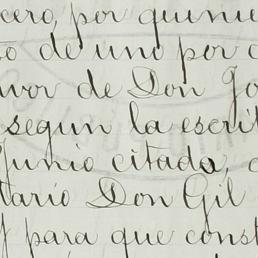 cero, por quinie
so de uno por c
avor de Don Jo
segun la escrit
Junio citada, c
tario Don Gil
y para que const